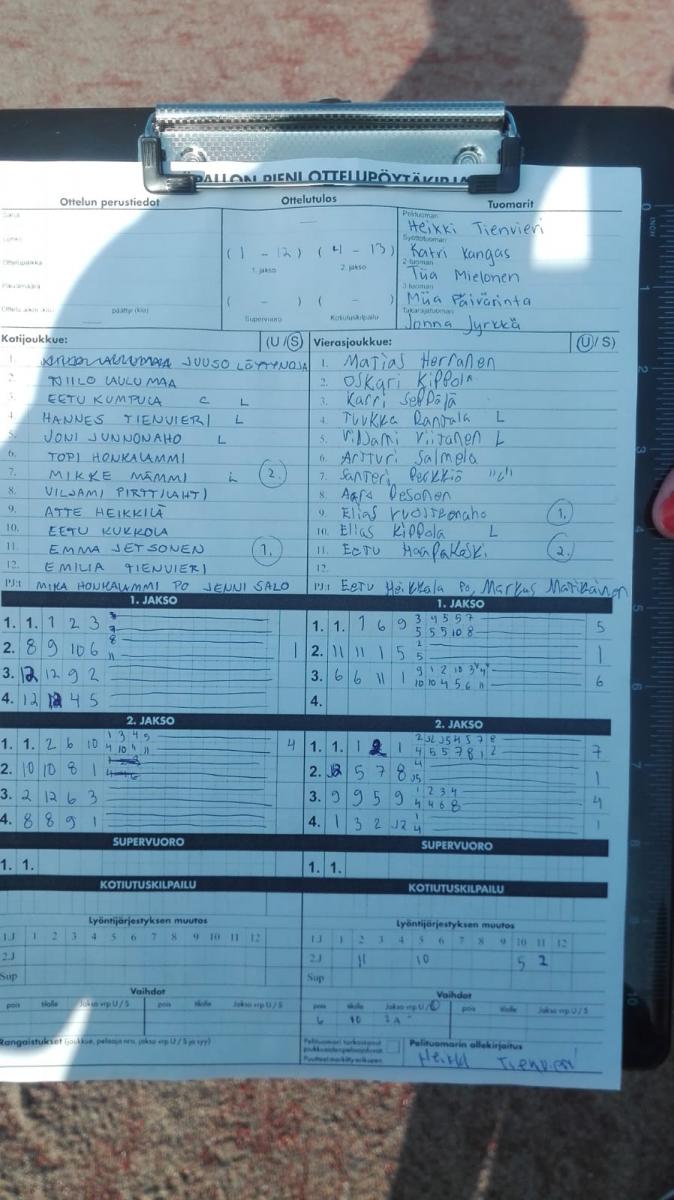 PALLON PIENI OTTELUPÖYTÄKIRJA
Ottelun perustiedot
Ottelutulos
Tuomarit
Sarja
Lohko
Ottelupaikka
Päivämäärä
päättyi (klo)
(1 - 12) (4 - 13)
1. jakso 2. jakso
( - ) ( - )
Supervuoro Kotiutuskilpailu
Pelituomari
Heikki Tienvieri
Syöttötuomari
Katri Kangas
2-tuomari
Tiia Mielonen
3-tuomari
Miia Päivärinta
Takarajatuomari
Jonna Jyrkkä
Kotijoukkue: (U / S)
1. JUUSO LÖTTYNOJA
2. NIILO LAULUMAA
3. EETU KUMPULA C L
4. HANNES TIENVIERI L
5. JONI JUNNONAHO L
6. TOPI HONKALAMMI
7. MIKKE MÄMMI L 2.
8. VILJAMI PIRTTILAHTI
9. ATTE HEIKKILÄ
10. EETU KUKKOLA
11. EMMA JETSONEN 1.
12. EMILIA TIENVIERI
PJ:t MIKA HONKALAMMI PO JENNI SALO
Vierasjoukkue: (U / S)
1. Matias Herranen
2. Oskari Kippola
3. Karri Seppälä
4. Tuukka Rantala L
5. Viljami Viitanen L
6. Artturi Salmela
7. Santeri Perkkiö "C"
8. Pesonen
9. Elias Vuostkonaho 1.
10. Elias Kippola L
11. Eetu Haapakoski 2.
12.
PJ:t Eetu Heikkala PO, Markus Matikainen
1. JAKSO
1. 1. 1 2 3
2. 8 9 10 6 1
3. 12 12 9 2
4. 12 12 4 5
1. JAKSO
1. 1. 1 6 9 3 4 5 5 7 5
5 5 5 10 8
2. 11 11 1 5 2 1
5
3. 6 6 11 1 6
10 10 4 5 6 11
4.
2. JAKSO
1. 1. 2 6 10 1 3 4 5 4
2. 10 10 8 1
3. 2 12 6 3
4. 8 8 9 1
2. JAKSO
1. 1. 1 2 1 7
4 5 5 7 8 1 2
2. 12 5 7 8 4 1
3. 9 9 5 9 1 2 3 4 4
4 4 6 8
4. 1 3 2 12 1 1
4
SUPERVUORO
1. 1.
SUPERVUORO
1. 1.
KOTIUTUSKILPAILU
KOTIUTUSKILPAILU
Lyöntijärjestyksen muutos
1.J 1 2 3 4 5 6 7 8 9 10 11 12
2.J
Sup
Lyöntijärjestyksen muutos
1.J 1 2 3 4 5 6 7 8 9 10 11 12
2.J 11 10 5 2
Sup
Vaihdot
pois tilalle Jakso vrp U / S pois tilalle Jakso vrp U / S
Vaihdot
pois tilalle Jakso vrp U / S pois tilalle Jakso vrp U / S
6 10
Rangaistukset (joukkue, pelaaja nro, jakso vrp U / S ja syy)
Pelituomari tarkastanut
Pelituomarin allekirjoitus
Heikki Tienvieri